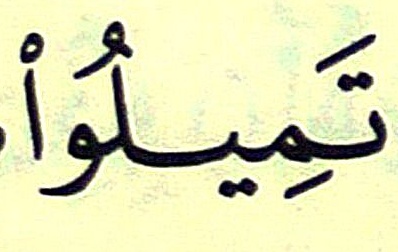 تَمِيلُوا۟